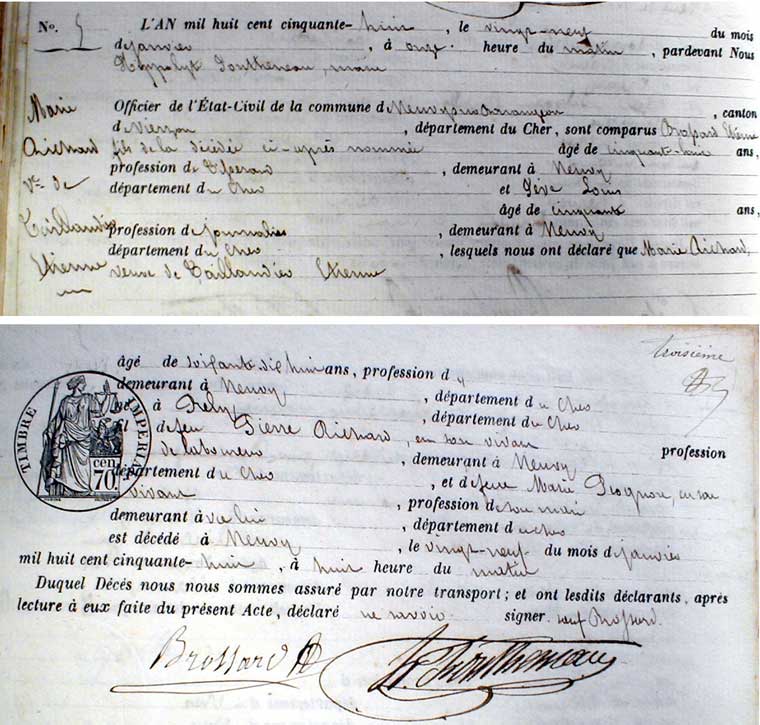 No. 5
L'AN mil huit cent cinquante-huit, le vingt-neuf du mois
de janvier, à onze heure du matin, pardevant Nous
maire
Officier de l'État-Civil de la commune de Neuvy sur Barangeon, canton
de Vierzon, département du Cher, sont comparus Brossard Etienne
fils de la décédée ci-après nommée âgé de cinquante-huit ans,
profession de Tisserand, demeurant à Neuvy
département du Cher et Louis
âgé de cinquante ans,
profession de journalier, demeurant à Neuvy
département du Cher, lesquels nous ont déclaré que Marie Richard,
veuve de Taillandier Etienne
Marie
Richard
Ve. de
Taillandier
Etienne
troisième
âgé de soixante dix huit ans, profession d
demeurant à Neuvy, département du Cher
né à, département du Cher
fil de feu Pierre Richard, en son vivant profession
de laboureur, demeurant à Neuvy
département du Cher, et de feue Marie, en son
vivant, profession de
demeurant à, département du cher
est décédé à Neuvy, le vingt-neuf du mois de janvier
mil huit cent cinquante-huit, à huit heure du matin
Duquel Décès nous nous sommes assuré par notre transport; et ont lesdits déclarants, après
lecture à eux faite du présent Acte, déclaré ne savoir signer sauf Brossard.
TIMBRE IMPÉRIAL
70 cen
Brossard